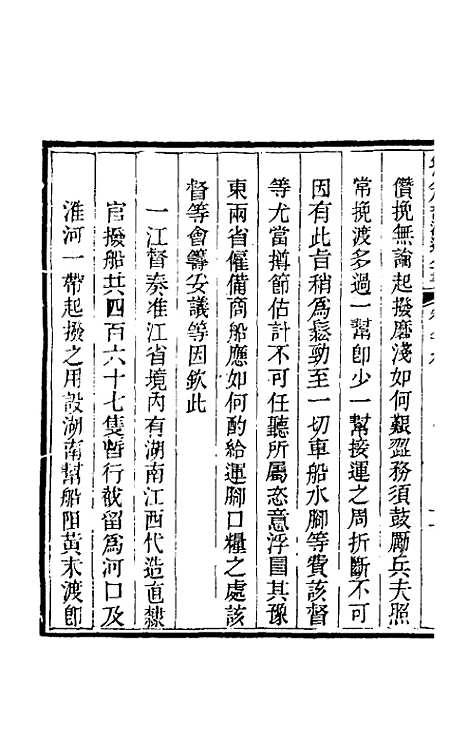 儹挽無論起撥磨淺如何艱澀務須鼓勵兵夫照
常挽渡多過一幫卽少一幫接運之周折斷不可
因有此旨稍爲鬆勁至一切車船水腳等費該督
等尤當撙節估計不可任聽所屬恣意浮圖其豫
東兩省僱備商船應如何酌給運腳口糧之處該
督等會籌妥議等因欽此
一江督奏准江省境內有湖南江西代造直隸
官撥船共四百六十七隻暫行截留爲河口及
淮河一帶起撥之用設湖南幫船阻黃未渡卽